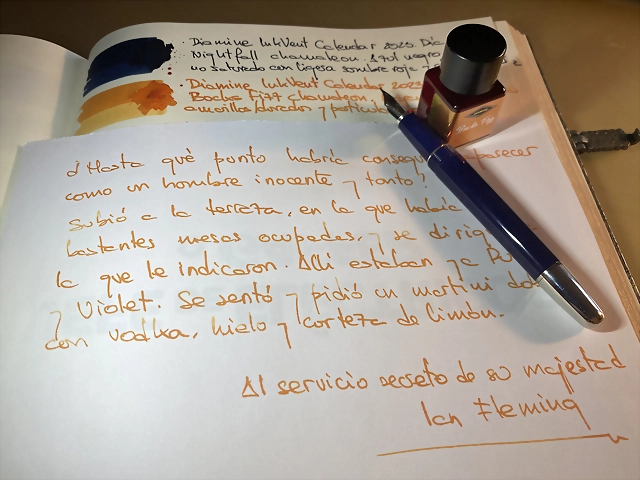 Diamine InkVent Calendar 2023. Día
Nightfall chameleon. Azul negro
no saturado con ligera sombra roja y
Diamine InkVent Calendar 202
Bocke Fizz Chameleon
amarillo dorados y
¿Hasta qué punto habría consegu aparecer
como un hombre inocente y tonto?
Subió a la terraza, en la que había
bastantes mesas ocupadas, y se dirig
la que le indicaron. Allí estaban ya
y Violet. Se sentó y pidió un martini do
con vodka, hielo y corteza de limón.
Al servicio secreto de su majestad
Ian Fleming